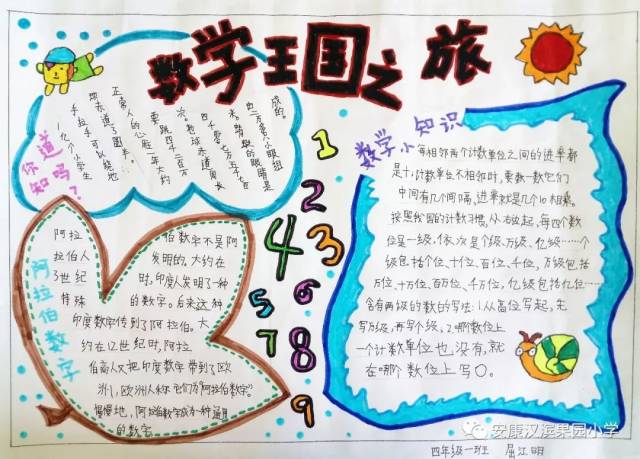 数学王国之旅
你知道吗?
1亿个小学生
手拉手可以绕地
球赤道了圈半。
正常人的心脏一年大约
要跳四千二百万
次。地球赤道周长
四千零七万五千
米。蜻蜓的眼睛是
由一万多只小眼组
成的。
阿拉伯数字
阿拉伯数字不是阿
拉伯人发明的,大约在
3世纪时,印度人发明了一种
特殊的数字。后来这种
印度数字传到了阿拉伯。大
约在12世纪时,阿拉
伯商人又把印度数字带到了欧
洲,欧洲人称它们为"阿拉伯数字"。
慢慢地,阿拉伯数字成为一种通用
的数字
1
2
4 3
5 6
7 8
9
数学小知识
每相邻两个计数单位之间的进率都
是十,计数单位不相邻时,要数一数它们
中间有几个间隔,进率就是几个10相乘。
按照我国的计数习惯,从右边起,每四个数
位是一级,依次是个级、万级、亿级……个
级包括个位、十位、百位、千位,万级包括
万位、十万位、百万位、千万位,亿级包括亿位……
含有两级的数的写法:1从高位写起,先
写万级,再写个级,2哪数位上
一个计数单位也没有,就
在哪个数位上写0。
四年级一班 屈江明
安康汉滨果园小学